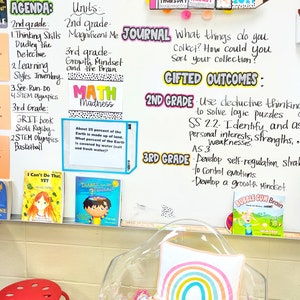 THURSDAY
AGENDA:
2nd grade:
1 Thinking Skills
Dudley the
Detective
2. Learning
Styles Inventory
3. See-Run-Do
STEM Olympics
3rd Grade:
STEM Olympics
Basketball
Units:
2nd grade-
Magnificent Me
3rd grade-
Growth Mindset
and the Brain
MATH
Madness
About 29 percent of the
Earth is made up of land.
What percent of the Earth
is covered by water (salt
and fresh water)?
JOURNAL What things do you
collect? How could you
sort your collection?
GIFTED OUTCOMES:
2ND GRADE - Use deductive thinking
to solve logic puzzles
SS 2.2 Identify and
personal interests, strengths,
weaknesses
AS 3
3RD GRADE - Develop self-regulation strat
to control emotions
Develop a growth mindset
I Can't Do That,
YET
BUBBLE GUM BRAIN